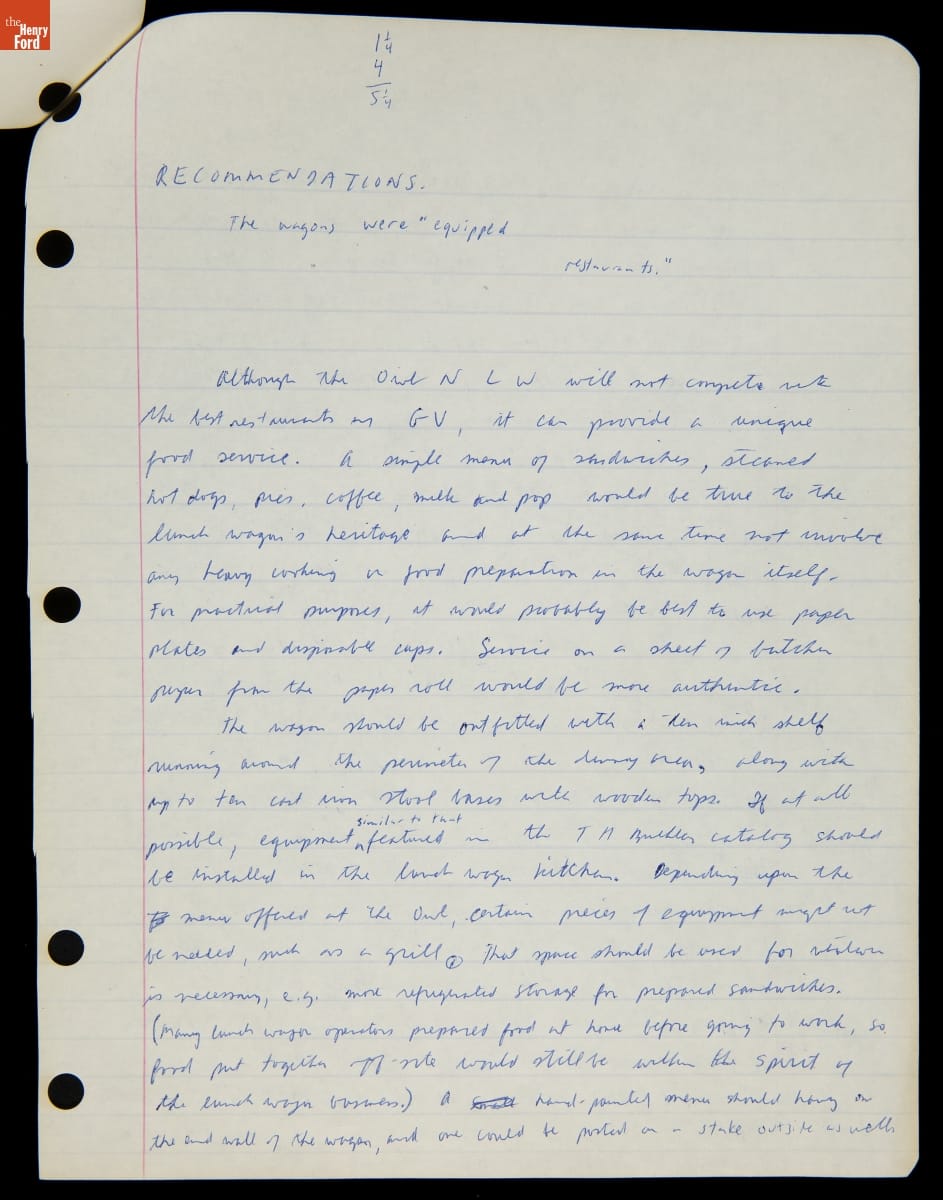 the
Henry
Ford
1 1/4
4
5 1/4
RECOMMENDATIONS.
The wagons were "equipped
restaurants."
Although the Owl N L W will not compete with
the best restaurants in GV, it can provide a unique
food service. A simple menu of sandwiches, steamed
hot dogs, pies, coffee, milk and pop would be true to the
lunch wagon's heritage and at the same time not involve
any heavy cooking or food preparation in the wagon itself.
For practical purposes, it would probably be best to use paper
plates and disposable cups. Service on a sheet of butcher
paper from the paper roll would be more authentic.
The wagon should be outfitted with a ten inch shelf
running around the perimeter of the dining area, along with
up to ten cast iron stool bases with wooden tops. If at all
similar to that
possible, equipment featured in the T H Buckley catalog should
be installed in the lunch wagon kitchen. Depending upon the
menu offered at the Owl, certain pieces of equipment might not
be needed, such as a grill. That space should be used for
is necessary, e.g. more refrigerated storage for prepared sandwiches.
(Many lunch wagon operators prepared food at home before going to work, so
food put together off-site would still be within the spirit of
the lunch wagon business.) A hand-painted menu should hang on
the end wall of the wagon, and one could be posted on a stake outside as well.